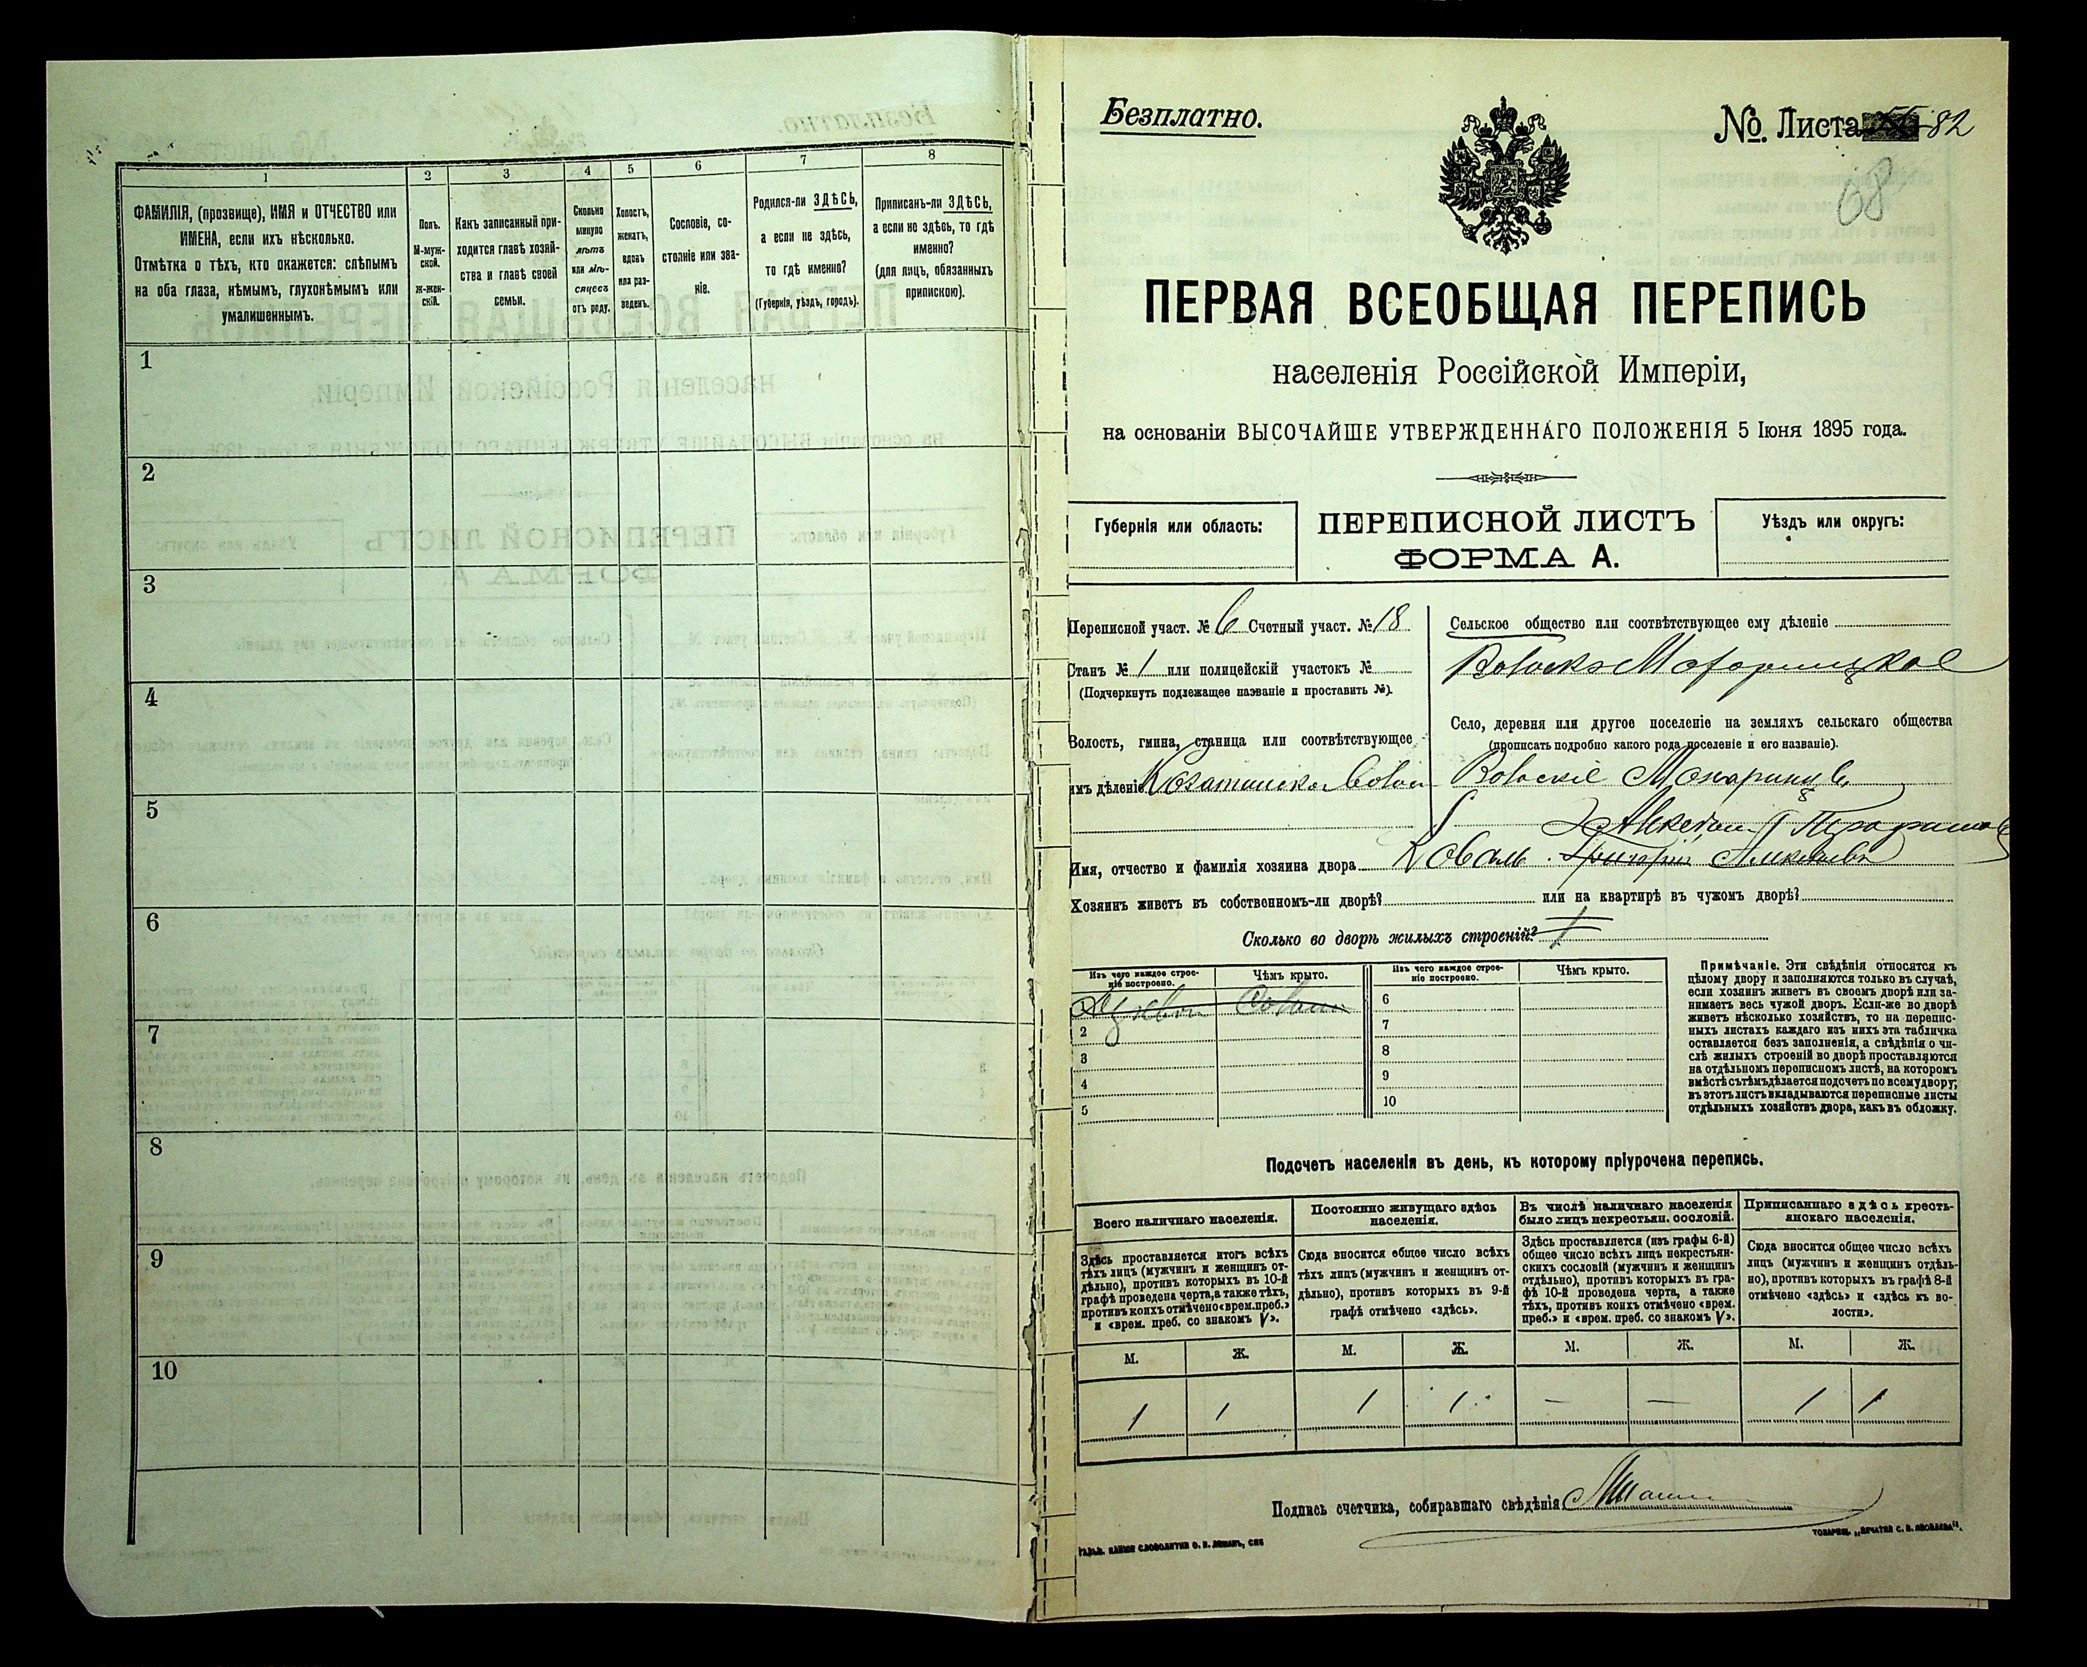 1
2
3
4
5
6
7
8
ФАМИЛІЯ, (прозвище), ИМЯ и ОТЧЕСТВО или
ИМЕНА, если ихъ нѣсколько.
Отмѣтка о тѣхъ, кто окажется: слѣпымъ
на оба глаза, нѣмымъ, глухонѣмымъ или
умалишеннымъ.
Полъ.
М-муж-
ской.
Ж-жен-
скій.
Какъ записанный при-
ходится главѣ хозяй-
ства и главѣ своей
семьи.
Сколько
минуло
лѣтъ
или мѣ-
сяцевъ
отъ роду.
Холостъ,
женатъ,
вдовъ
или раз-
веденъ.
Сословіе, со-
стояніе или зва-
ніе.
Родился-ли ЗДѢСЬ,
а если не здѣсь,
то гдѣ именно?
(Губернія, уѣздъ, городъ).
Приписанъ-ли ЗДѢСЬ,
а если не здѣсь, то гдѣ
именно?
(для лицъ, обязанныхъ
припискою).
1
2
3
4
5
6
7
8
9
10
Безплатно.
№. Листа 82
68
ПЕРВАЯ ВСЕОБЩАЯ ПЕРЕПИСЬ
населенія Россійской Имперіи,
на основаніи ВЫСОЧАЙШЕ УТВЕРЖДЕННАГО ПОЛОЖЕНІЯ 5 Іюня 1895 года.
Губернія или область:
ПЕРЕПИСНОЙ ЛИСТЪ
ФОРМА А.
Уѣздъ или округъ:
Переписной участ. № 6 Счетный участ. № 18
Станъ № 1 или полицейскій участокъ №
(Подчеркнуть подлежащее названіе и проставить №).
Волость, гмина, станица или соотвѣтствующее
имъ дѣленіе
Сельское общество или соотвѣтствующее ему дѣленіе
Село, деревня или другое поселеніе на земляхъ сельскаго общества
(прописать подробно какого рода поселеніе и его названіе).
Имя, отчество и фамилія хозяина двора Коваль Григорій
Хозяинъ живетъ въ собственномъ-ли дворѣ? или на квартирѣ въ чужомъ дворѣ?
Сколько во дворѣ жилыхъ строеній? 1
Изъ чего каждое строе-
ніе построено.
Чѣмъ крыто.
Изъ чего каждое строе-
ніе построено.
Чѣмъ крыто.
2
3
4
5
6
7
8
9
10
Примѣчаніе. Эти свѣдѣнія относятся къ
цѣлому двору и заполняются только въ случаѣ,
если хозяинъ живетъ въ своемъ дворѣ или за-
нимаетъ весь чужой дворъ. Если-же во дворѣ
живетъ нѣсколько хозяйствъ, то на перепис-
ныхъ листахъ каждаго изъ нихъ эта табличка
оставляется безъ заполненія, а свѣдѣнія о чи-
слѣ жилыхъ строеній во дворѣ проставляются
на отдѣльномъ переписномъ листѣ, на которомъ
вмѣстѣ съ тѣмъ дѣлается подсчетъ по всему двору;
въ этотъ листъ вкладываются переписные листы
отдѣльныхъ хозяйствъ двора, какъ въ обложку.
Подсчетъ населенія въ день, къ которому пріурочена перепись.
Всего наличнаго населенія.
Постоянно живущаго здѣсь
населенія.
Въ числѣ наличнаго населенія
было лицъ некрестьян. сословій.
Приписаннаго здѣсь кресть-
янскаго населенія.
Здѣсь проставляется итогъ всѣхъ
тѣхъ лицъ (мужчинъ и женщинъ от-
дѣльно), противъ которыхъ въ 10-й
графѣ проведена черта, а также тѣхъ,
противъ коихъ отмѣчено «врем. преб.»
и «врем. преб. со знакомъ V».
Сюда вносится общее число всѣхъ
тѣхъ лицъ (мужчинъ и женщинъ от-
дѣльно), противъ которыхъ въ 9-й
графѣ отмѣчено «здѣсь».
Здѣсь проставляется (изъ графы 6-й)
общее число всѣхъ лицъ некрестьян-
скихъ сословій (мужчинъ и женщинъ
отдѣльно), противъ которыхъ въ гра-
фѣ 10-й проведена черта, а также
тѣхъ, противъ коихъ отмѣчено «врем.
преб.» и «врем. преб. со знакомъ V».
Сюда вносится общее число всѣхъ
лицъ (мужчинъ и женщинъ отдѣль-
но), противъ которыхъ въ графѣ 8-й
отмѣчено «здѣсь» и «здѣсь къ во-
лости».
М. Ж. М. Ж. М. Ж. М. Ж.
1 1 1 1 — — 1 1
Подпись счетчика, собиравшаго свѣдѣнія
ТОВАРИЩ. „ПЕЧАТНЯ С. П. ЯКОВЛЕВА“.